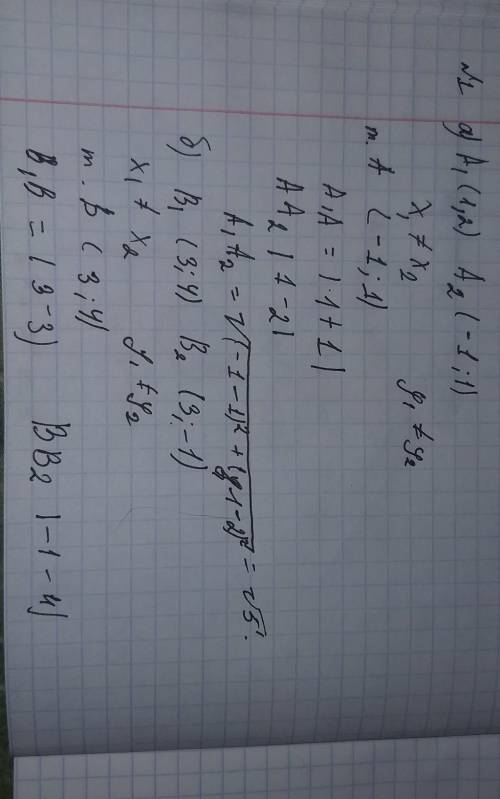 №1 а) A₁ (1,2) A₂ (-1;1)
x₁ ≠ x₂ y₁ ≠ y₂
т. A (-1;1)
A₁A = |-1+1|
A A₂ |1-2|
A₁A₂ = √(-1-1)² + (1-2)² = √5.
б) B₁ (3;4) B₂ (3;-1)
x₁ ≠ x₂ y₁ ≠ y₂
т. B (3;4)
B₁B = |3-3) BB₂ |-1-4|